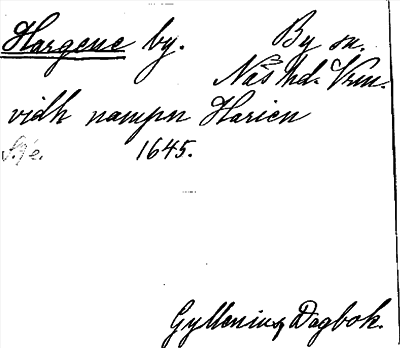 Hargene by. By sn.
Näs hd. Vrm.
vidh nampn Harien
1645.
Gyllenius Dagbok.